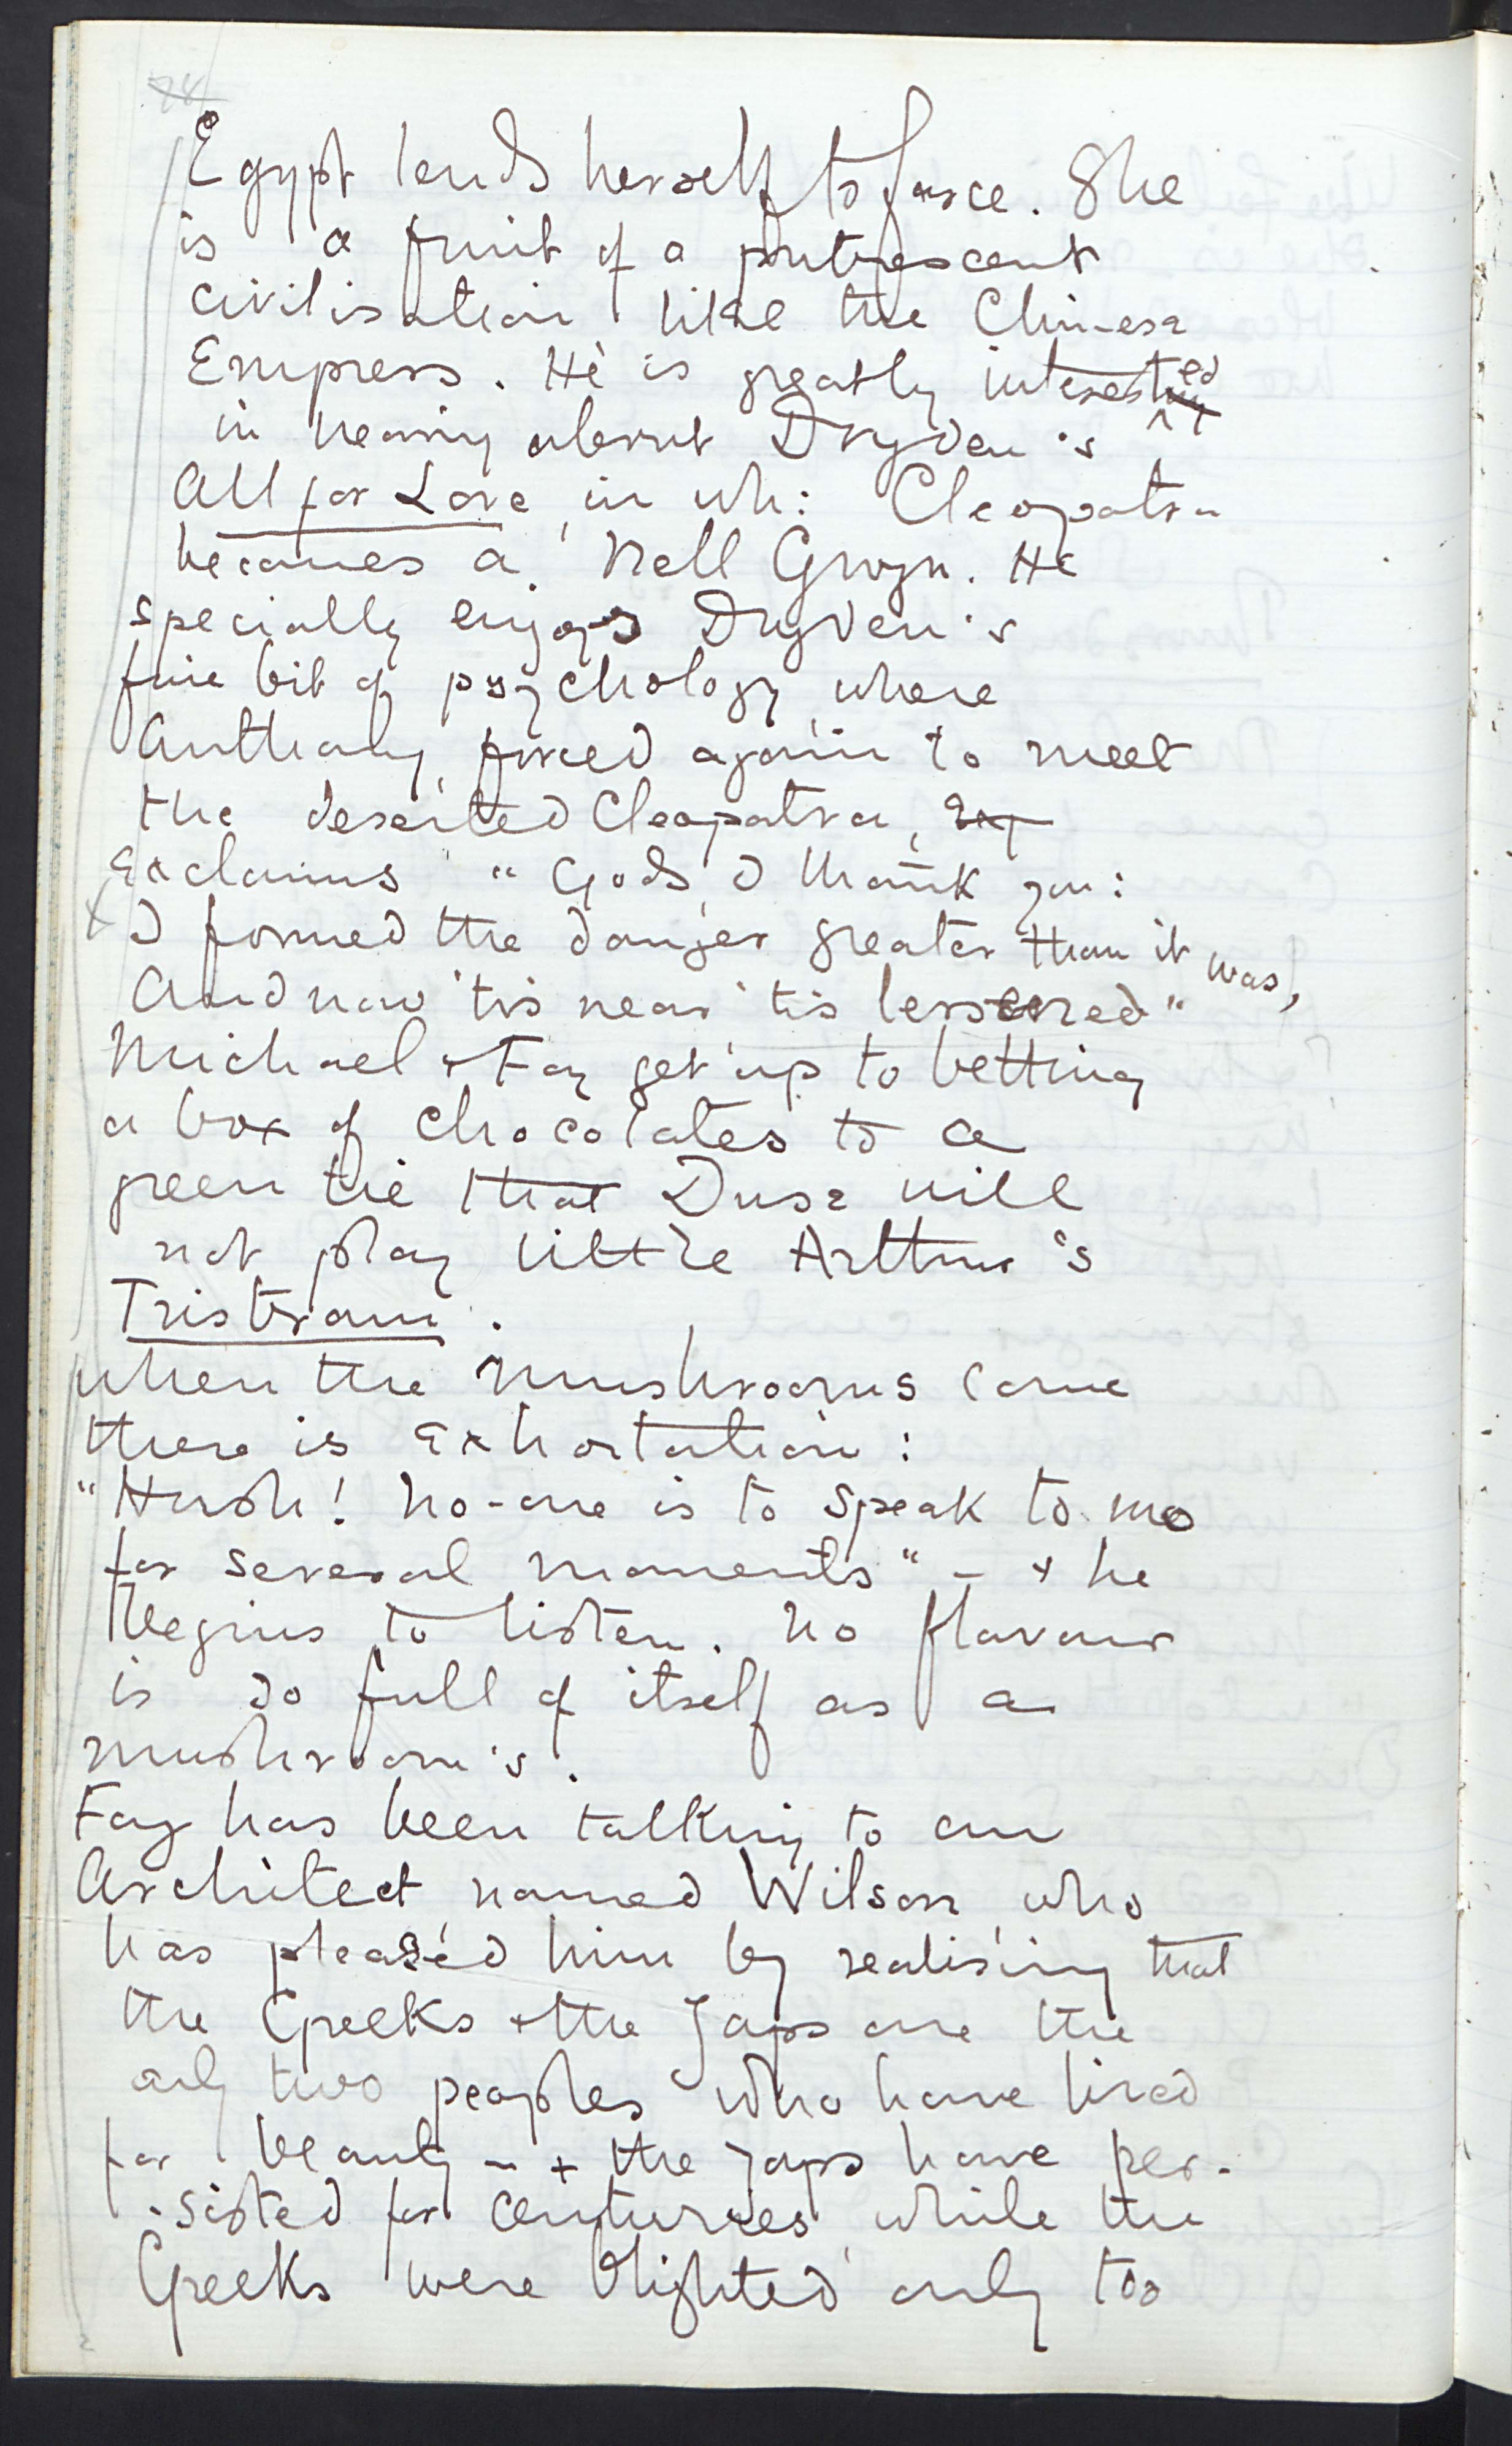 Egypt lends herself to farce. She
is a fruit of a putrescent
civilisation like the Chinese
Empress. He is greatly interested
in hearing about Dryden's
All for Love, in wh: Cleopatra
becomes a Nell Gwyn. He
specially enjoys Dryden's
fine bit of psychology, where
Anthony, forced again to meet
the deserted Cleopatra, ex
exclaims "Gods, I thank you:
x I formed the danger greater than it was,
And now 'tis near 'tis lessened"
Michael + Fay get up to betting
a box of chocolates to a
green tie that Duse will
not play little Arthur's
Tristram.
When the mushrooms come
there is exhortation:
"Hush! No-one is to speak to me
for several moments" – + he
begins to listen. No flavour
is so full of itself as a
mushroom's.
Fay has been talking to an
Architect named Wilson, who
has pleased him by realising that
the Greeks + the Japs are the
only two peoples who have lived
for beauty – + the Japs have per-
-sisted for centuries, while the
Greeks were blighted only too